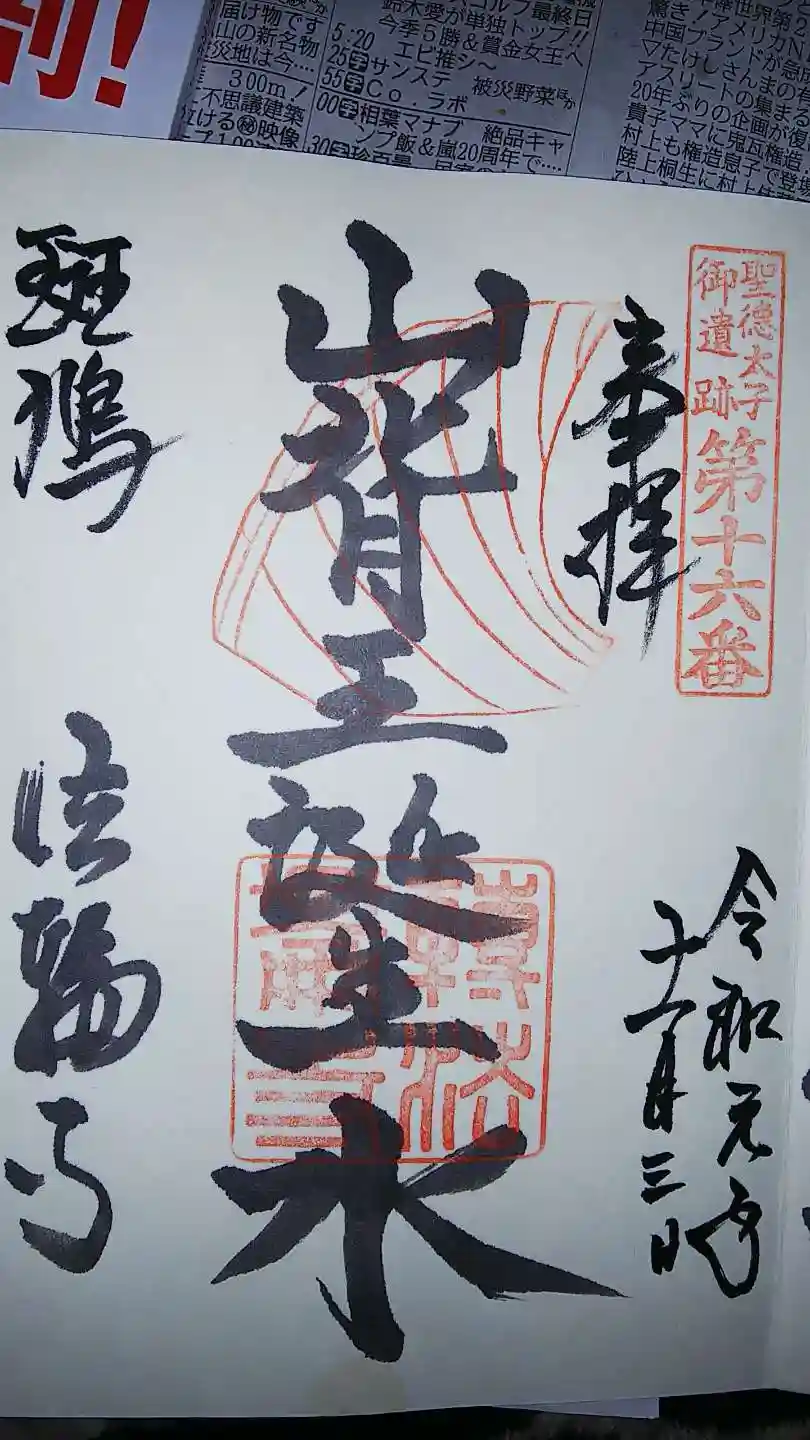 割!
届け物です
山の新名物
災地は今‥‥
300m!
不思議建築
泣ける㊙映像
ゴルフ最終日
鈴木愛が単独トップ!!
今季5勝&賞金女王へ
5:20 エビ推シ〜
25字サンステ 被災野菜ほか
55字Co.ラボ
00字相葉マナブ 絶品キャ
ンプ飯&嵐20周年で‥‥
驚き!アメリカN
中国ブランドが急
▽たけしさんまの
アスリートの集まる
20年ぶりの企画が復
貴子ママに鬼瓦権造
村上も権造息子で登場
陸上桐生に村上
聖徳太子
御遺跡
第十六番
奉拝
令和元年
十一月三日
山背王誕生水
斑鳩 法輪寺